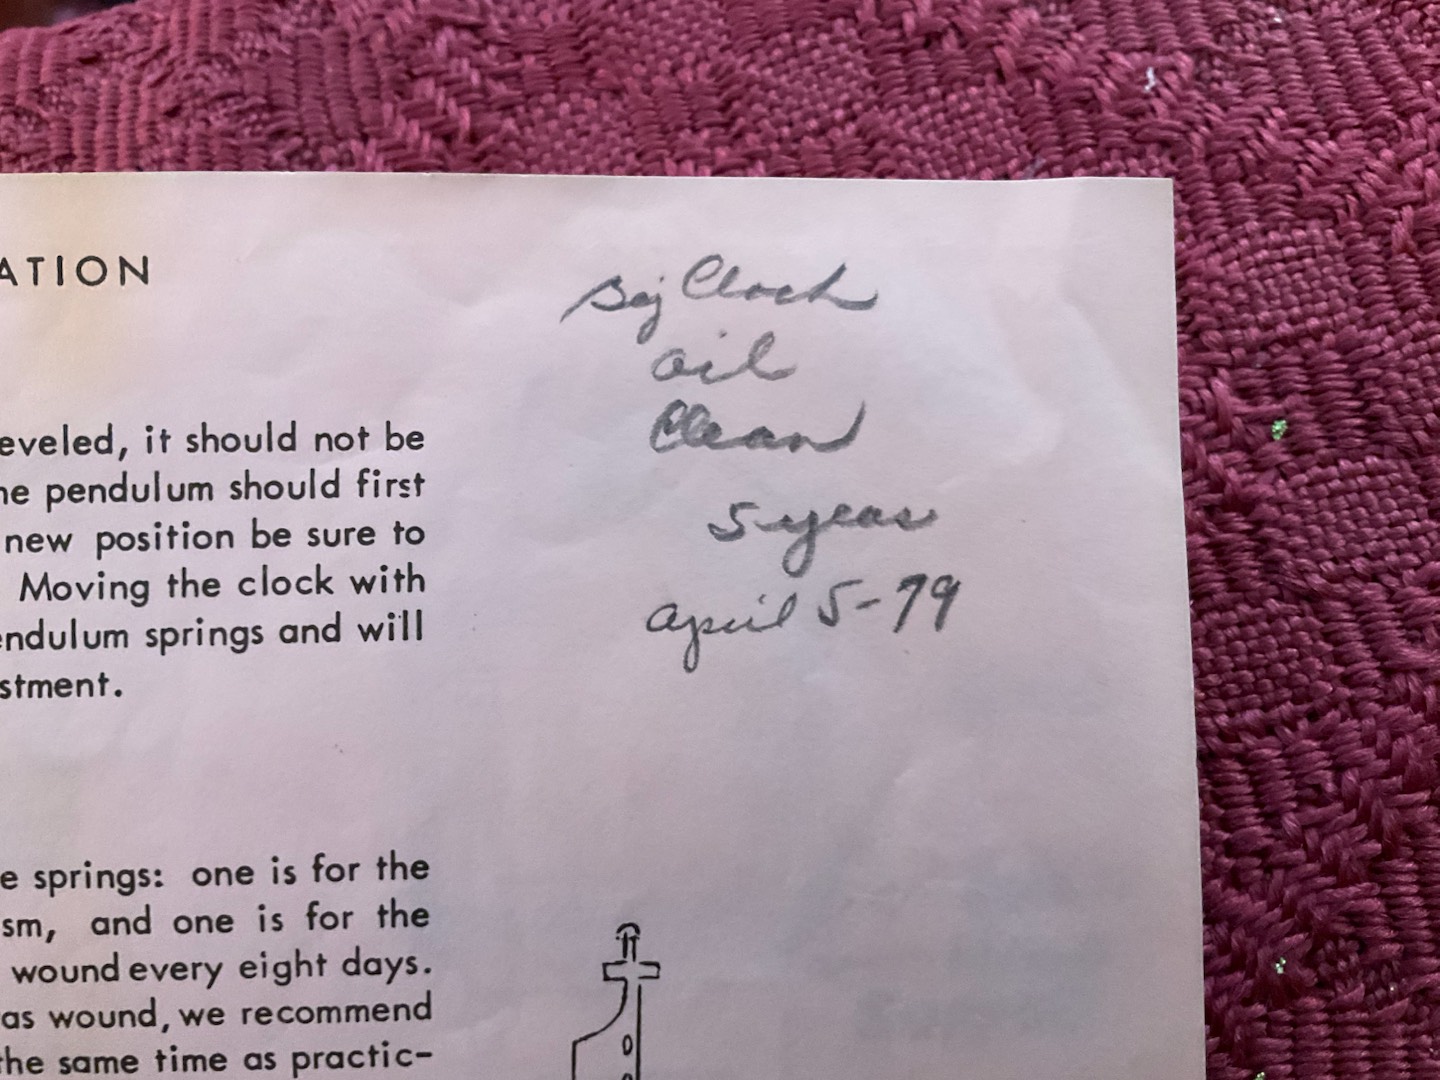 ATION
Big Clock
oil
Clean
5 years
April 5-79
eveled, it should not be
he pendulum should first
new position be sure to
Moving the clock with
endulum springs and will
stment.
e springs: one is for the
ism, and one is for the
wound every eight days.
as wound, we recommend
the same time as practic-